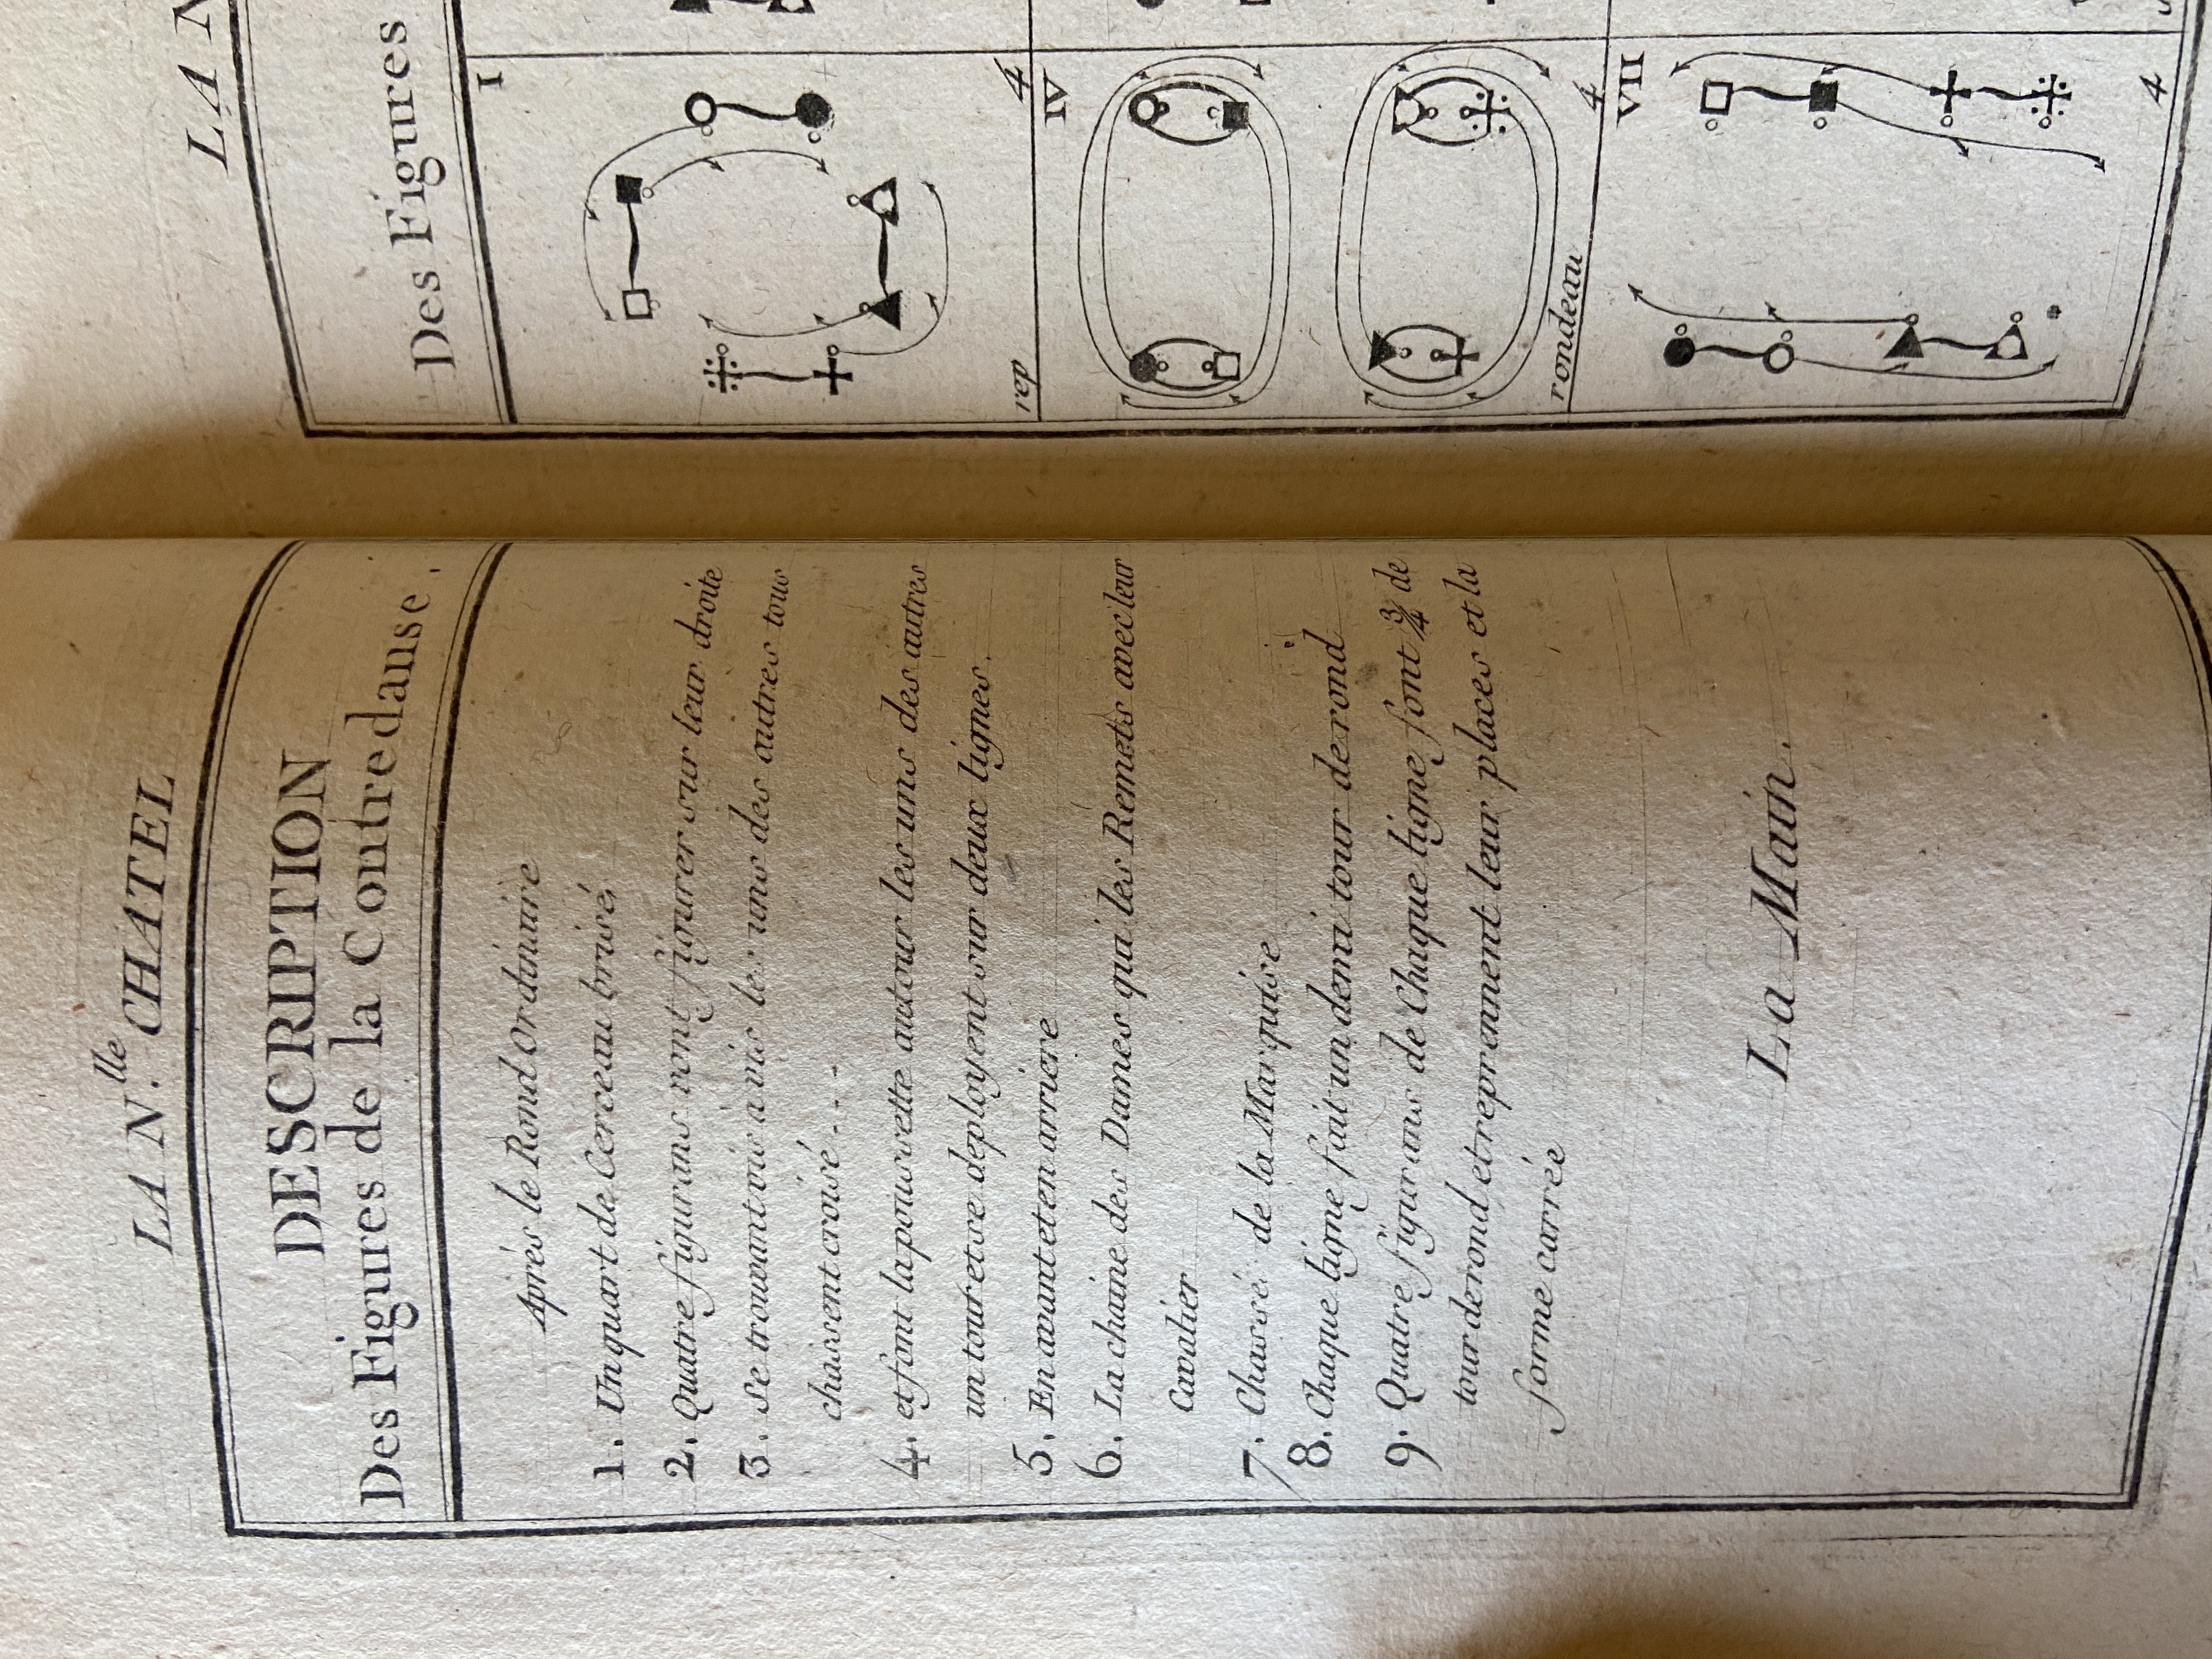 LA N.lle CHATEL
DESCRIPTION
Des Figures de la Contredanse.
Après le Rond Ordinaire
1. Un quart de Cerceau brisé,
2. Quatre figurans vont figurer sur leur droite
3. Se trouvant vis a vis les uns des autres tous
chassent croisé...
4. et font la poussette autour les uns des autres
un tour et se deployent sur deux lignes.
5. En avant et en arriere
6. La chaine des Dames qui les Remets avec leur
Cavalier
7. Chassé de la Marquise
8. Chaque ligne fait un demi tour de rond
9. Quatre figurans de Chaque ligne font 3/4 de
tour de rond et reprennent leur places et la
forme carrée
La Main.
LA N
Des Figures
I
rep
4
IV
rondeau
4
VII
4